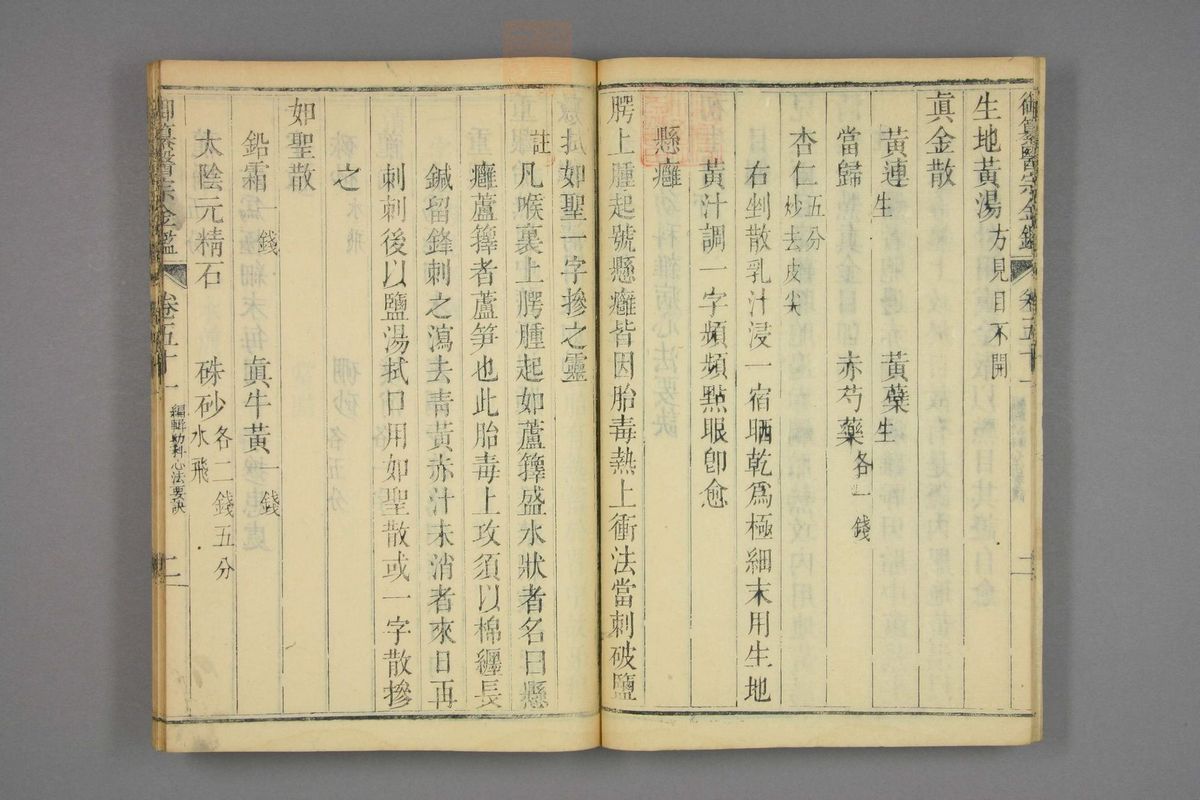 御纂醫宗金鑑 卷五十
生地黃湯方見目不開
眞金散
黃連生 黃蘗生
當歸 赤芍藥各一錢
杏仁五分炒去皮尖
右剉散乳汁浸一宿晒乾爲極細末用生地
黃汁調一字頻頻點眼卽愈
懸癰
腭上腫起號懸癰皆因胎毒熱上衝法當刺破鹽
湯拭如聖一字摻之靈
註凡喉裏上腭腫起如蘆籜盛水狀者名曰懸
癰蘆籜者蘆笋也此胎毒上攻須以棉纏長
鍼留鋒刺之瀉去青黃赤汁未消者來日再
刺刺後以鹽湯拭口用如聖散或一字散摻
之
如聖散
鉛霜一錢 眞牛黃一錢
太陰元精石 硃砂水飛各二錢五分
御纂醫宗金鑑 卷五十 編輯幼科心法要訣 二